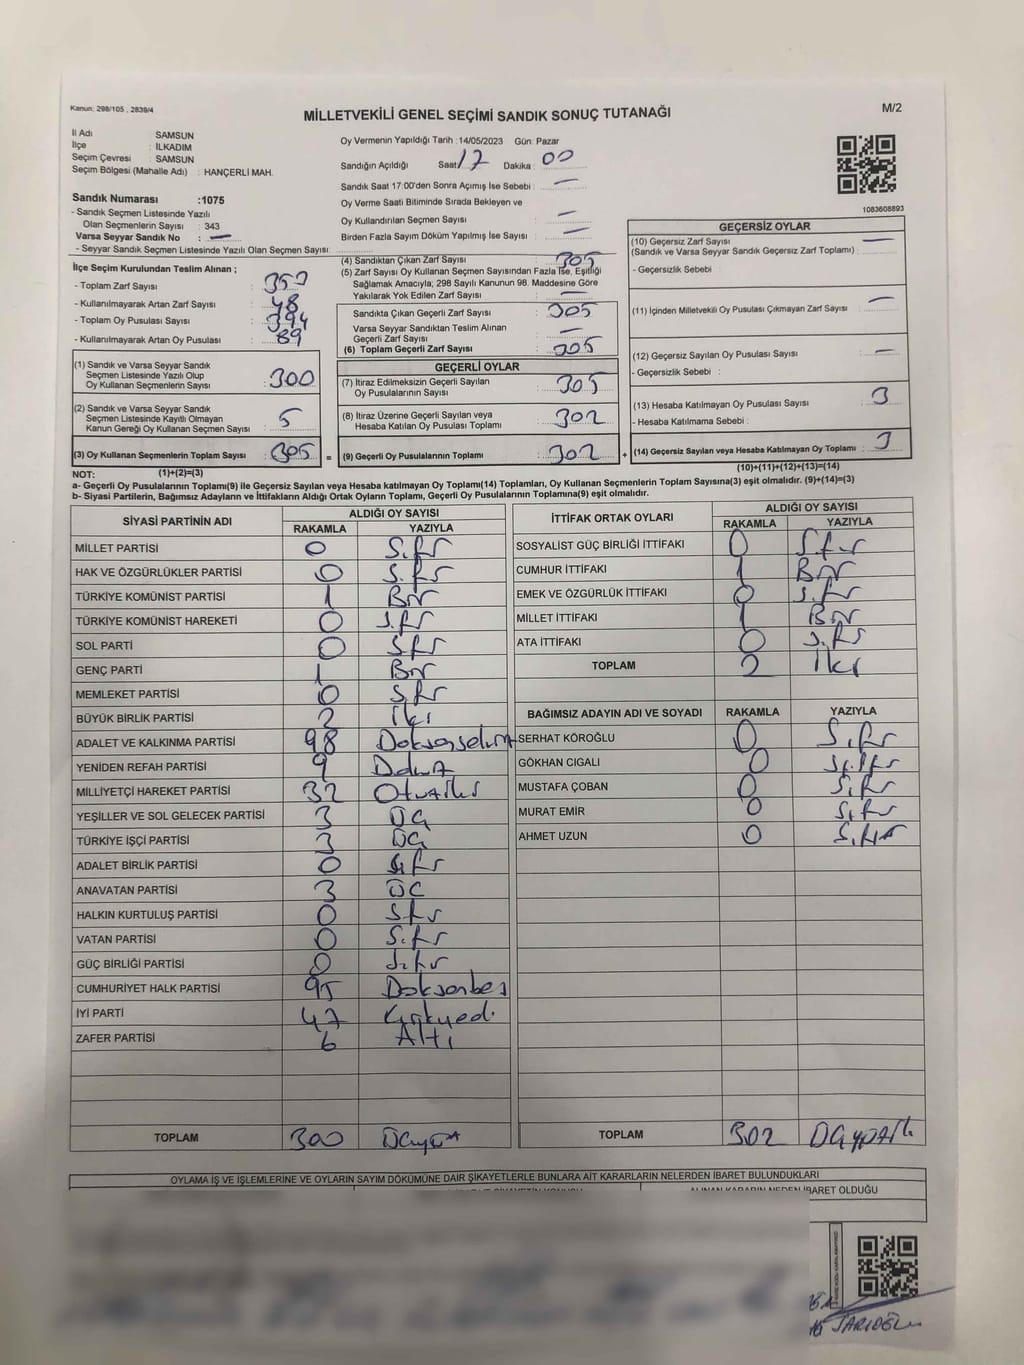 Kanun: 298/105 , 2839/4
MİLLETVEKİLİ GENEL SEÇİMİ SANDIK SONUÇ TUTANAĞI
M/2
İl Adı : SAMSUN
İlçe : İLKADIM
Seçim Çevresi : SAMSUN
Seçim Bölgesi (Mahalle Adı) : HANÇERLİ MAH.
Sandık Numarası :1075
- Sandık Seçmen Listesinde Yazılı
Olan Seçmenlerin Sayısı : 343
Varsa Seyyar Sandık No : —
- Seyyar Sandık Seçmen Listesinde Yazılı Olan Seçmen Sayısı:
Oy Vermenin Yapıldığı Tarih :14/05/2023 Gün: Pazar
Sandığın Açıldığı Saat 17 Dakika : 00
Sandık Saat 17:00'den Sonra Açımış İse Sebebi : —
Oy Verme Saati Bitiminde Sırada Bekleyen ve
Oy Kullandırılan Seçmen Sayısı : —
Birden Fazla Sayım Döküm Yapılmış İse Sayısı : —
1083608893
İlçe Seçim Kurulundan Teslim Alınan ;
- Toplam Zarf Sayısı :
- Kullanılmayarak Artan Zarf Sayısı : 48
- Toplam Oy Pusulası Sayısı : 394
- Kullanılmayarak Artan Oy Pusulası : 89
(1) Sandık ve Varsa Seyyar Sandık
Seçmen Listesinde Yazılı Olup
Oy Kullanan Seçmenlerin Sayısı : 300
(2) Sandık ve Varsa Seyyar Sandık
Seçmen Listesinde Kayıtlı Olmayan
Kanun Gereği Oy Kullanan Seçmen Sayısı : 5
(3) Oy Kullanan Seçmenlerin Toplam Sayısı : 305 =
(4) Sandıktan Çıkan Zarf Sayısı : 305
(5) Zarf Sayısı Oy Kullanan Seçmen Sayısından Fazla İse, Eşitliği
Sağlamak Amacıyla; 298 Sayılı Kanunun 98. Maddesine Göre
Yakılarak Yok Edilen Zarf Sayısı : —
Sandıkta Çıkan Geçerli Zarf Sayısı : 305
Varsa Seyyar Sandıktan Teslim Alınan
Geçerli Zarf Sayısı : —
(6) Toplam Geçerli Zarf Sayısı : 305
GEÇERLİ OYLAR
(7) İtiraz Edilmeksizin Geçerli Sayılan
Oy Pusulalarının Sayısı : 305
(8) İtiraz Üzerine Geçerli Sayılan veya
Hesaba Katılan Oy Pusulası Toplamı : 302
(9) Geçerli Oy Pusulalarının Toplamı : 302 +
GEÇERSİZ OYLAR
(10) Geçersiz Zarf Sayısı : —
(Sandık ve Varsa Seyyar Sandık Geçersiz Zarf Toplamı) :
- Geçersizlik Sebebi :
(11) İçinden Milletvekili Oy Pusulası Çıkmayan Zarf Sayısı : —
(12) Geçersiz Sayılan Oy Pusulası Sayısı : —
- Geçersizlik Sebebi :
(13) Hesaba Katılmayan Oy Pusulası Sayısı : 3
- Hesaba Katılmama Sebebi :
(14) Geçersiz Sayılan veya Hesaba Katılmayan Oy Toplamı : 3
NOT: (1)+(2)=(3)
(10)+(11)+(12)+(13)=(14)
a- Geçerli Oy Pusulalarının Toplamı(9) ile Geçersiz Sayılan veya Hesaba katılmayan Oy Toplam(14) Toplamları, Oy Kullanan Seçmenlerin Toplam Sayısına(3) eşit olmalıdır. (9)+(14)=(3)
b- Siyasi Partilerin, Bağımsız Adayların ve İttifakların Aldığı Ortak Oyların Toplamı, Geçerli Oy Pusulalarının Toplamına(9) eşit olmalıdır.
SİYASİ PARTİNİN ADI
ALDIĞI OY SAYISI
RAKAMLA YAZIYLA
MİLLET PARTİSİ 0 Sıfır
HAK VE ÖZGÜRLÜKLER PARTİSİ 0 Sıfır
TÜRKİYE KOMÜNİST PARTİSİ 1 Bir
TÜRKİYE KOMÜNİST HAREKETİ 0 Sıfır
SOL PARTİ 0 Sıfır
GENÇ PARTİ 1 Bir
MEMLEKET PARTİSİ 0 Sıfır
BÜYÜK BİRLİK PARTİSİ 2 İki
ADALET VE KALKINMA PARTİSİ 98 Doksansekiz
YENİDEN REFAH PARTİSİ 9 Dokuz
MİLLİYETÇİ HAREKET PARTİSİ 32 Otuziki
YEŞİLLER VE SOL GELECEK PARTİSİ 3 Üç
TÜRKİYE İŞÇİ PARTİSİ 3 Üç
ADALET BİRLİK PARTİSİ 0 Sıfır
ANAVATAN PARTİSİ 3 Üç
HALKIN KURTULUŞ PARTİSİ 0 Sıfır
VATAN PARTİSİ 0 Sıfır
GÜÇ BİRLİĞİ PARTİSİ 0 Sıfır
CUMHURİYET HALK PARTİSİ 95 Doksanbeş
İYİ PARTİ 47 Kırkyedi
ZAFER PARTİSİ 6 Altı
TOPLAM 300 Üçyüz
İTTİFAK ORTAK OYLARI
ALDIĞI OY SAYISI
RAKAMLA YAZIYLA
SOSYALİST GÜÇ BİRLİĞİ İTTİFAKI 0 Sıfır
CUMHUR İTTİFAKI 1 Bir
EMEK VE ÖZGÜRLÜK İTTİFAKI 0 Sıfır
MİLLET İTTİFAKI 1 Bir
ATA İTTİFAKI 0 Sıfır
TOPLAM 2 İki
BAĞIMSIZ ADAYIN ADI VE SOYADI RAKAMLA YAZIYLA
SERHAT KÖROĞLU 0 Sıfır
GÖKHAN CIGALI 0 Sıfır
MUSTAFA ÇOBAN 0 Sıfır
MURAT EMİR 0 Sıfır
AHMET UZUN 0 Sıfır
TOPLAM 302 Üçyüziki
OYLAMA İŞ VE İŞLEMLERİNE VE OYLARIN SAYIM DÖKÜMÜNE DAİR ŞİKAYETLERLE BUNLARA AİT KARARLARIN NELERDEN İBARET BULUNDUKLARI
ALINAN KARARIN NEDEN İBARET OLDUĞU